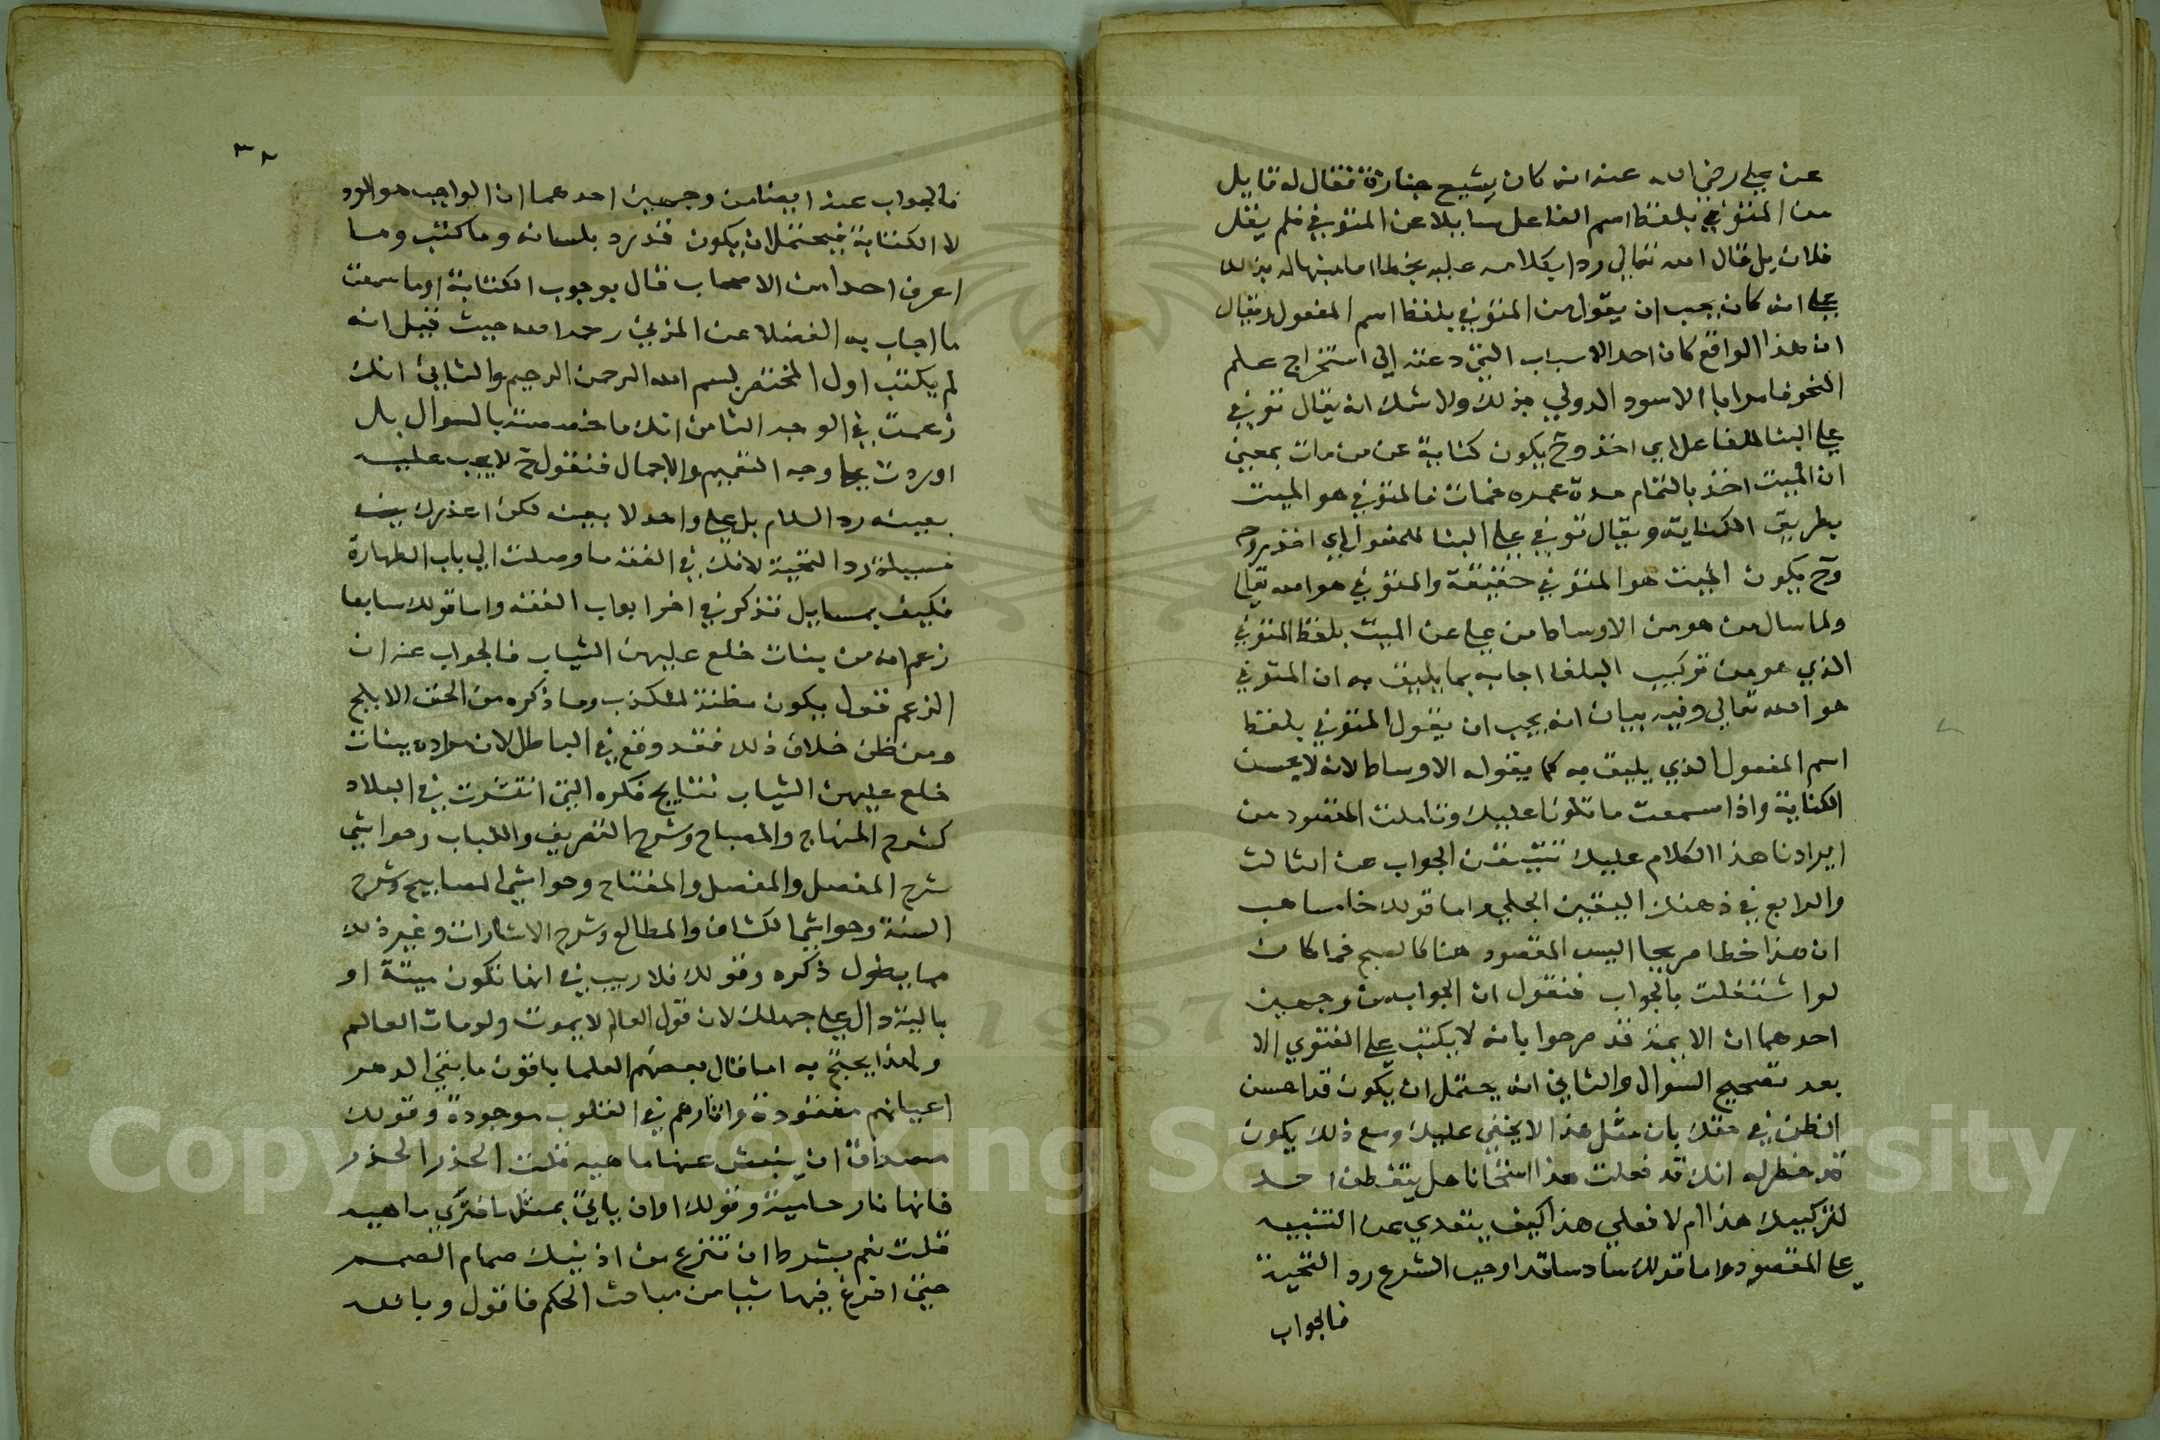 عن علي رضي الله عنه انه كان يشيع جنازة فقال له قايل
من المتوفي بلفظ اسم الفاعل سايلا عن المتوفي فلم يقل
فلان بل قال الله تعالي ردا لكلامه عليه مخطا اما منبها له بذلك
علي انه كان يجب ان يقول من المتوفي بلفظ اسم المفعول ويقال
ان هذا الواقع كان احد الاسباب التي دعته الي استخراج علم
النحو فامر ابا الاسود الدولي بذلك ولا شك انه يقال توفي
علي البنا للفاعل اي اخذ وح يكون كناية عن من مات بمعني
ان الميت اخذ بالتمام مدة عمره فمات فالمتوفي هو الميت
بطريق الكناية ويقال توفي علي البنا للمفعول اي اخذ روحه
وح يكون الميت هو المتوفي حقيقة والمتوفي هو الله تعالي
ولما سال من هو من الاوساط من علي عن الميت بلفظ المتوفي
الذي هو من تركيب البلغا اجابه بما يليق به ان المتوفي
هو الله تعالي وفيه بيان انه يجب ان يقول المتوفي بلفظ
اسم المفعول الذي يليق به كما يقوله الاوساط لانه لا يحسن
الكناية واذا سمعت ما تلونا عليك وتاملت المقصود من
ايرادنا هذا الكلام عليك تيقن الجواب عن الثالث
والرابع في ذهنك اليقين الجلي واما قولك خامسا هب
ان هذا خطا صريحا اليس المقصود هنا كالصبح فما كان
لو اشتغلت بالجواب فنقول ان الجواب من وجهين
احدهما ان الايمة قد صرحوا بانه لا يكتب علي الفتوي الا
بعد تصحيح السوال والثاني انه يحتمل ان يكون قد احسن
الظن في حقك بان مثل هذا لا يخفي عليك ومع ذلك يكون
قد خطر له انك قد فعلت هذا امتحانا هل يتفطن احد
لتركيبك هذا ام لا فعلي هذا كيف يتعدي عن التنبيه
علي المقصود واما قولك سادسا قد اوجب الشرع رد التحية
فالجواب
٣٢
فالجواب عنه ايضا من وجهين احدهما ان الواجب هو الرد
لا الكتابة فيحتمل ان يكون قد رد بلسانه وما كتب وما
اعرف احدا من الاصحاب قال بوجوب الكتابة او ما سمعت
ما اجاب به الفضلا عن المزني رحمه الله حيث قيل انه
لم يكتب اول المختصر بسم الله الرحمن الرحيم والثاني انك
زعمت في الوجه الثامن انك ما خصصته بالسوال بل
اوردت علي وجه التعميم والاجمال فنقول ح لا يجب عليه
بعينه رد السلام بل علي واحد لا بعينه لكن اعذرك في
مسيلة رد التحية لانك في الفقه ما وصلت الي باب الطهارة
فكيف بمسايل تذكر في اخر ابواب الفقه واما قولك سابعا
زعم انه من بنات خلع عليهن الثياب فالجواب عنه ان
الزعم قول يكون مظنة للكذب وما ذكره من الحق الابلج
ومن ظن خلاف ذلك فقد وقع في الباطل لان مراده ببنات
خلع عليهن الثياب نتايج فكره التي انتشرت في البلاد
كشرح المنهاج والمصباح وشرح التصريف واللباب وحواشي
شرح المفصل والمفصل والمفتاح وحواشي المصابيح وشرح
السنة وحواشي الكشاف والمطالع وشرح الاشارات وغير ذلك
مما يطول ذكره وقولك فلا ريب في انها تكون ميتة او
بالية دال علي جهلك لان قول العالم لا يموت ولو مات العالم
ولهذا يحتج به اما قال بعضهم العلما باقون ما بقي الدهر
اعيانهم مفقودة واثارهم في القلوب موجودة وقولك
مصداق ان ينبش عنها ماهيه قلت الحذر الحذر
فانها نار حامية وقولك او ان ياتي بمثلها فنري ماهيه
قلت نعم بشرط ان تنزع من اذنيك صمام الصمم
حتي افرغ فيها شيا من مباحث الحكم فاقول وبالله
Copyright © King Saud University
1957